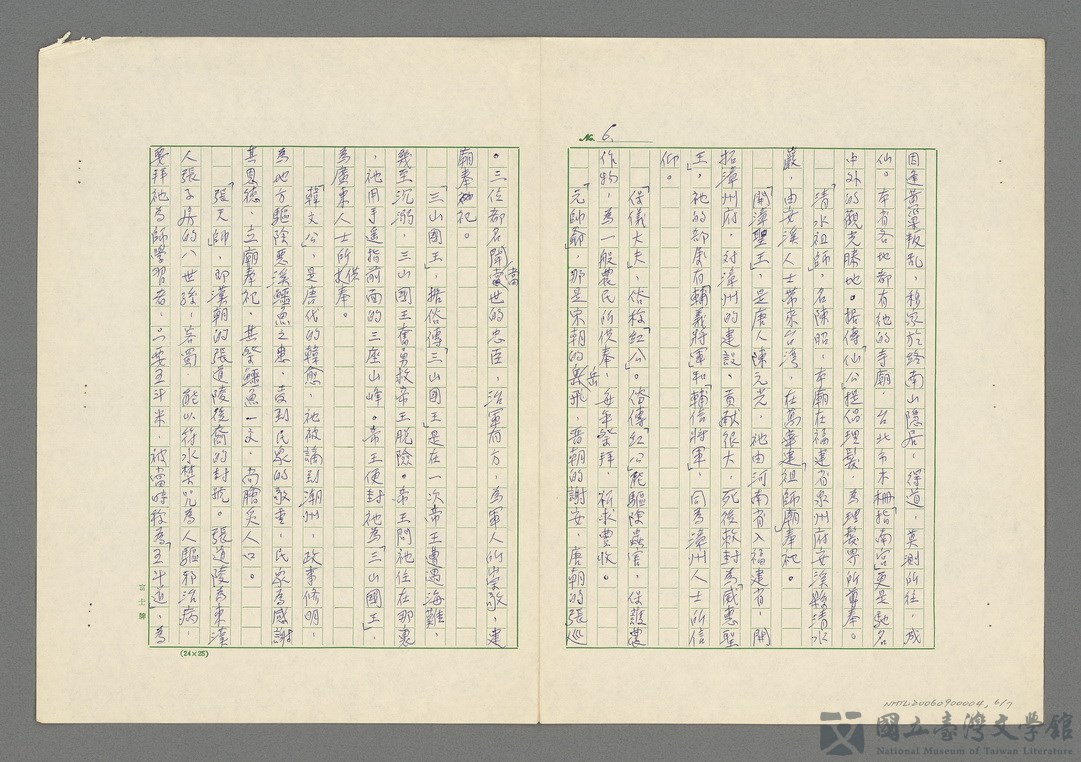 No. 6.
因逢黃巢叛乱，移家於終南山隱居，「得道，莫測所往，成
仙。本省各地都有祂的寺廟，台北市木柵「指南宮」更是馳名
中外的觀光勝地。據傳「仙公」提倡理髮，為理髮界所尊奉。
「清水祖師」，名陳昭，本廟在福建省泉州府安溪縣清水
巖，由安溪人士帶來台灣，在萬華建「祖師廟」奉祀。
「開漳聖王」，是唐人陳元光，祂由河南省入福建省，開
拓漳州府，对漳州的建設，貢献很大，死後敕封為「威惠聖
王」，祂的部屬有「輔義將軍」和「輔信將軍」，同為漳州人士所信
仰。
「保儀大夫」，俗稱「紅公」。俗傳「紅公」能驅除蟲害，保護農
作物，為一般農民所供奉，每年祭拜，祈求豊收。
「元帥爺」，那是宋朝的岳飛，晋朝的謝安，唐朝的張巡
。三位都名開當世的忠臣，治軍有方，為軍人所崇敬，建
廟奉祀。
「三山國王」，据俗傳「三山國王」是在一次帝王遭遇海難，
幾至沉溺，三山國王奮勇救帝王脱險。帝王問祂住在那裏
，祂用手遙指前面的三座山峰。帝王便封祂為「三山國王」，
為廣東人士所供奉。
「韓文公」，是唐代的韓愈，祂被謫到潮州，政事修明，
為地方驅除惡溪鱷魚之患，受到民眾的敬重，民眾為感謝
其恩德，立廟奉祀，其祭鱷魚一文，尚膾炙人口。
「張天師」，即漢朝的張道陵後裔的封號。張道陵為東漢
人張子房的八世孫，客蜀，能以符水禁咒為人驅邪治病，
要拜祂為師學習者，只要五斗米，被當時稱為「五斗道」，為
(24×25)
NMTL20060900004, 6/7
國立臺灣文學館
National Museum of Taiwan Literature